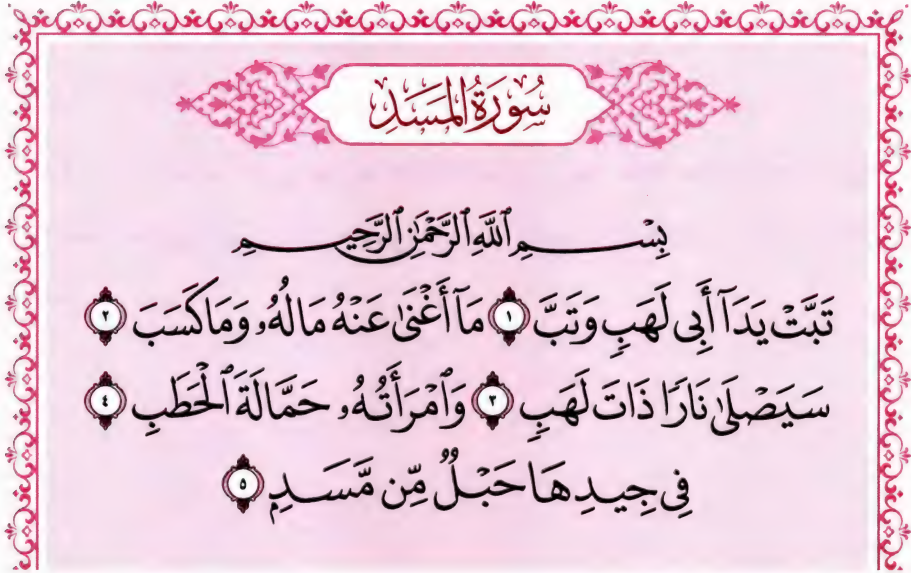 سُورَةُ المَسَدِ
بِسْمِ ٱللَّهِ ٱلرَّحْمَٰنِ ٱلرَّحِيمِ
تَبَّتْ يَدَآ أَبِى لَهَبٍ وَتَبَّ ١ مَآ أَغْنَىٰ عَنْهُ مَالُهُۥ وَمَا كَسَبَ ٢
سَيَصْلَىٰ نَارًا ذَاتَ لَهَبٍ ٣ وَٱمْرَأَتُهُۥ حَمَّالَةَ ٱلْحَطَبِ ٤
فِى جِيدِهَا حَبْلٌ مِّن مَّسَدٍۭ ٥